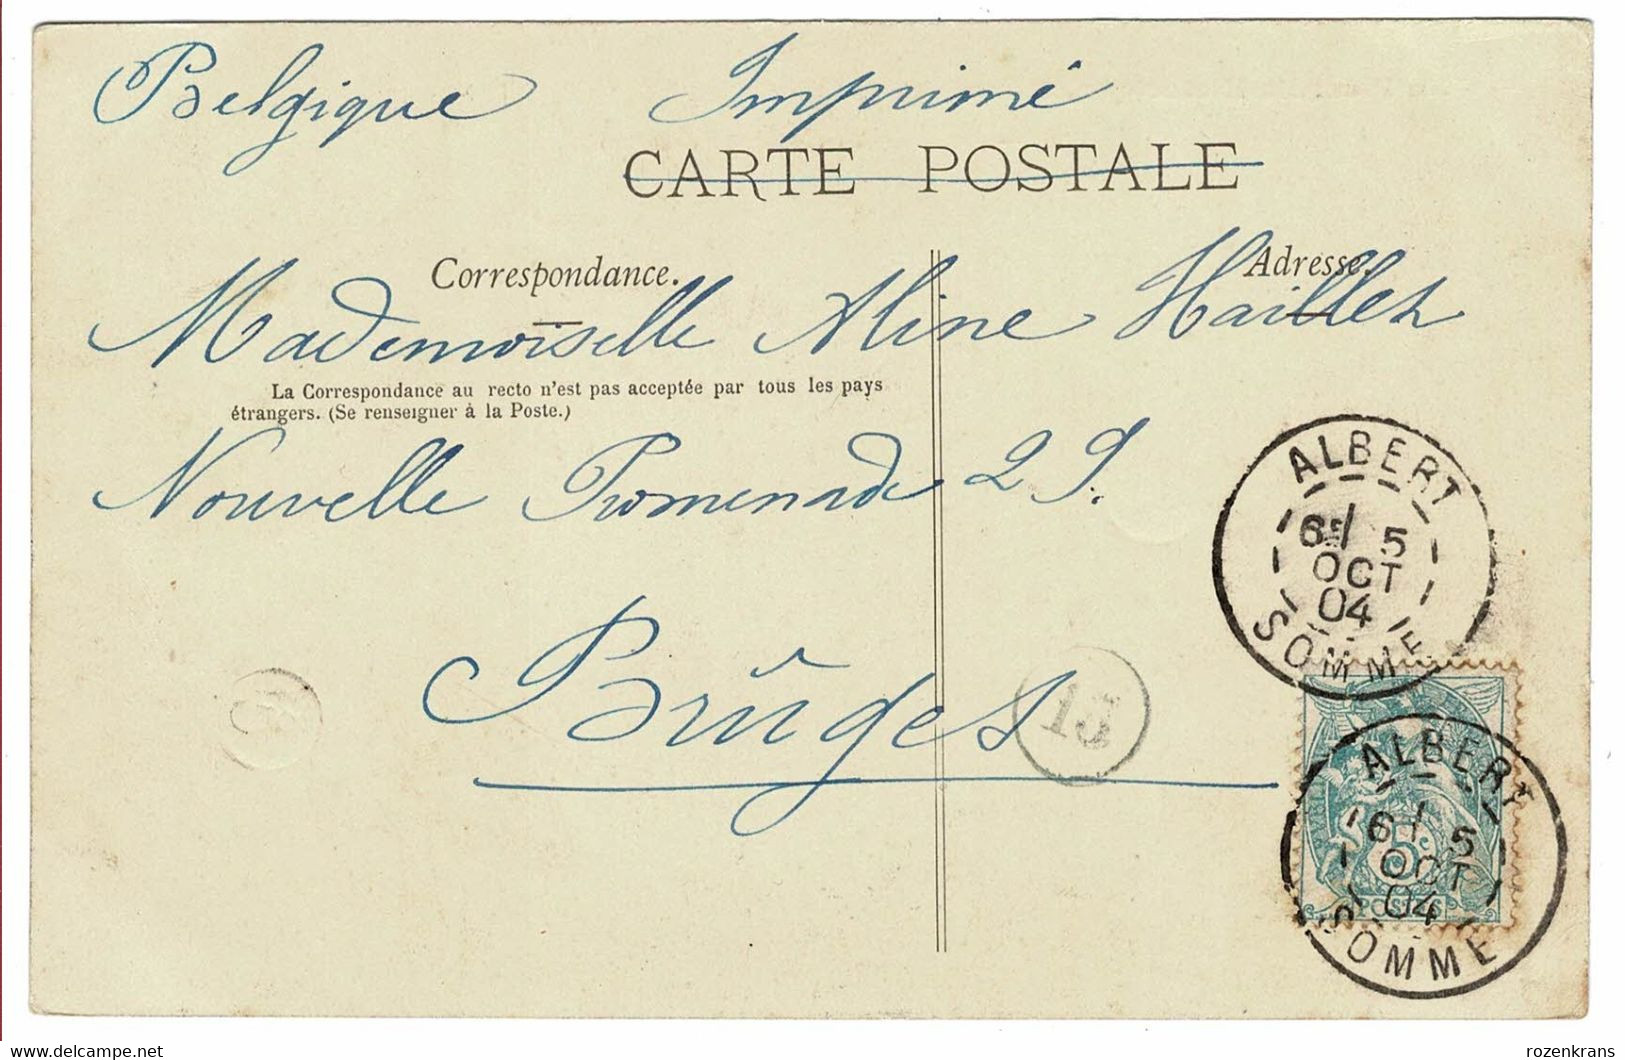 Belgique Imprimé
CARTE POSTALE
Correspondance. Adresse.
Mademoiselle Aline Haillez
La Correspondance au recto n'est pas acceptée par tous les pays
étrangers. (Se renseigner à la Poste.)
Nouvelle Promenade 29.
Brûges
ALBERT
6E 5
OCT
04
SOMME
15
ALBERT
6 5
OCT
04
SOMME
5c
POSTES
delcampe.net
rozenkrans